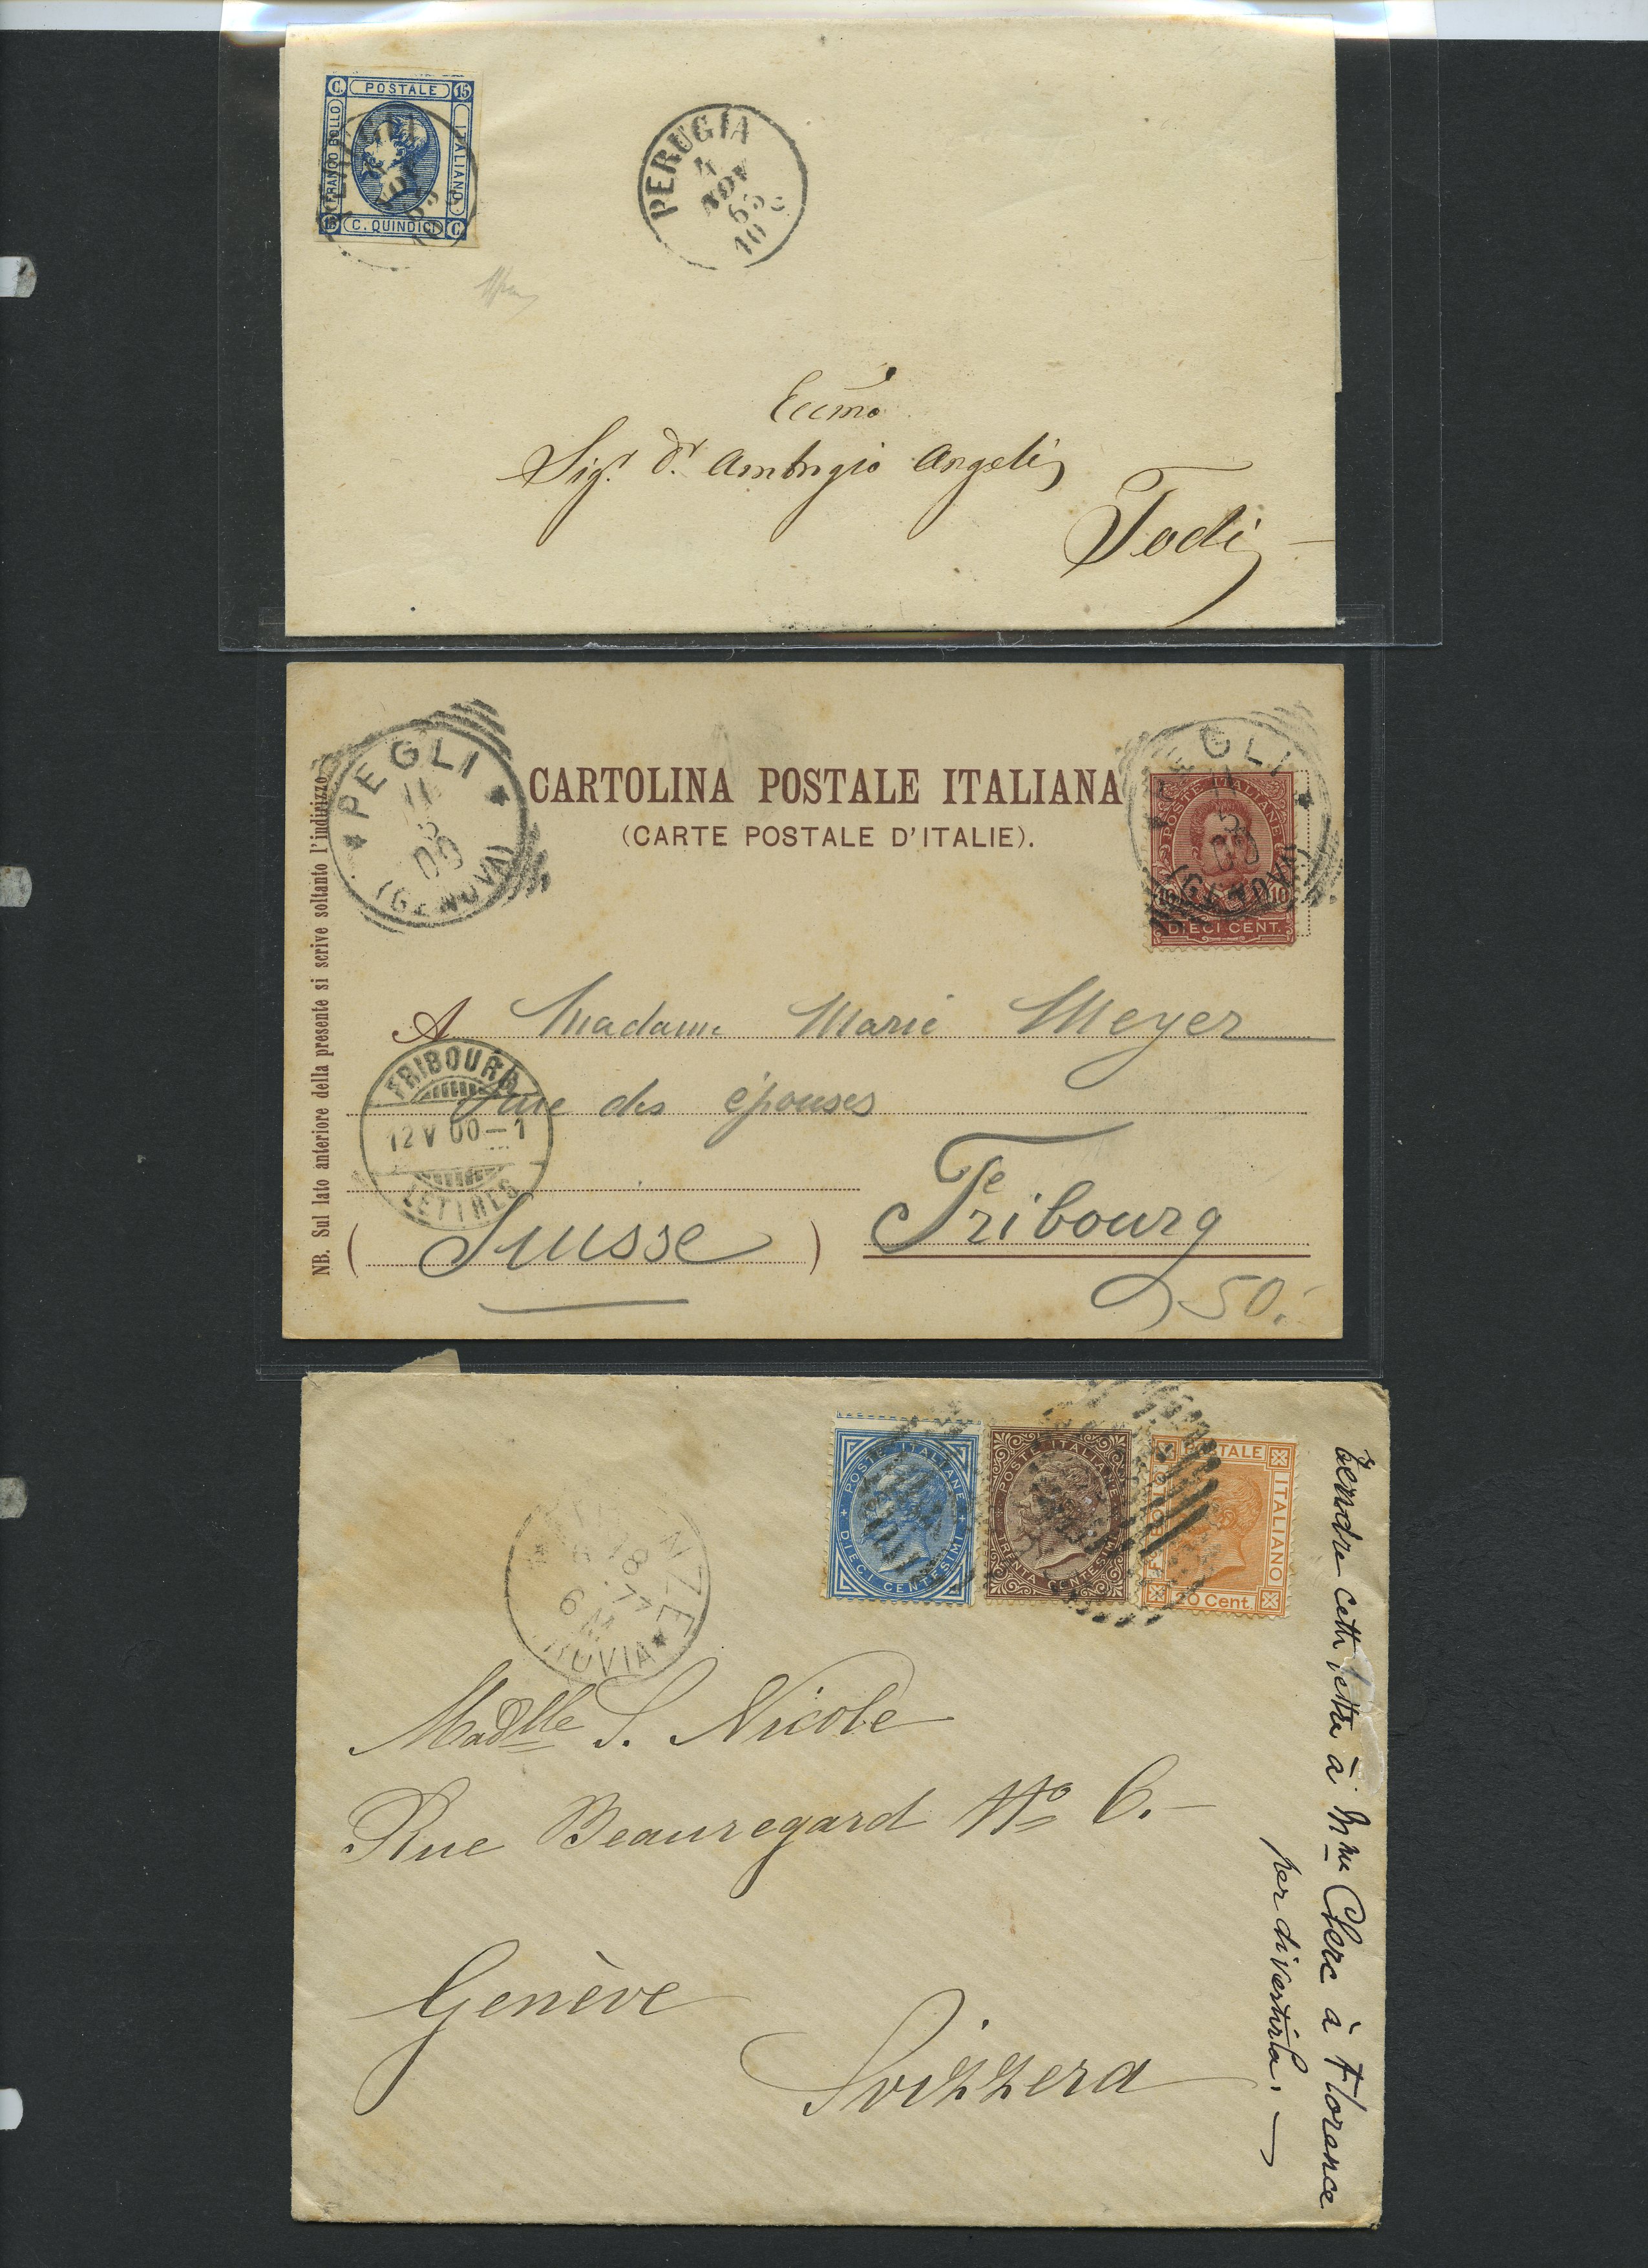 C. POSTALE 15
FRANCO BOLLO
ITALIANO
15 C. QUINDICI C.
PERUGIA
4
NOV
63
10
Eccmo
Sigr. Dr. Ambrogio Angeli
Todi
PEGLI
11
5
00
(GENOVA)
CARTOLINA POSTALE ITALIANA
(CARTE POSTALE D'ITALIE).
PEGLI
5
00
(GENOVA)
POSTE ITALIANE
10 10
DIECI CENT.
NB. Sul lato anteriore della presente si scrive soltanto l'indirizzo
A Madame Marie Meyer
rue des épouses
FRIBOURG
12 V 00–1
LETTRES
Fribourg
(Suisse)
50.-
POSTE ITALIANE
DIECI CENTESIMI
POSTE ITALIANE
TRENTA CENTESIMI
POSTALE
ITALIANO
BOLLO
20 Cent.
18
77
6 M
Madlle S. Nicole
Rue Beauregard No 6.–
Genève
Svizzera
Rendre cette lettre à Mme Clerc à Florence
per divertirla. —